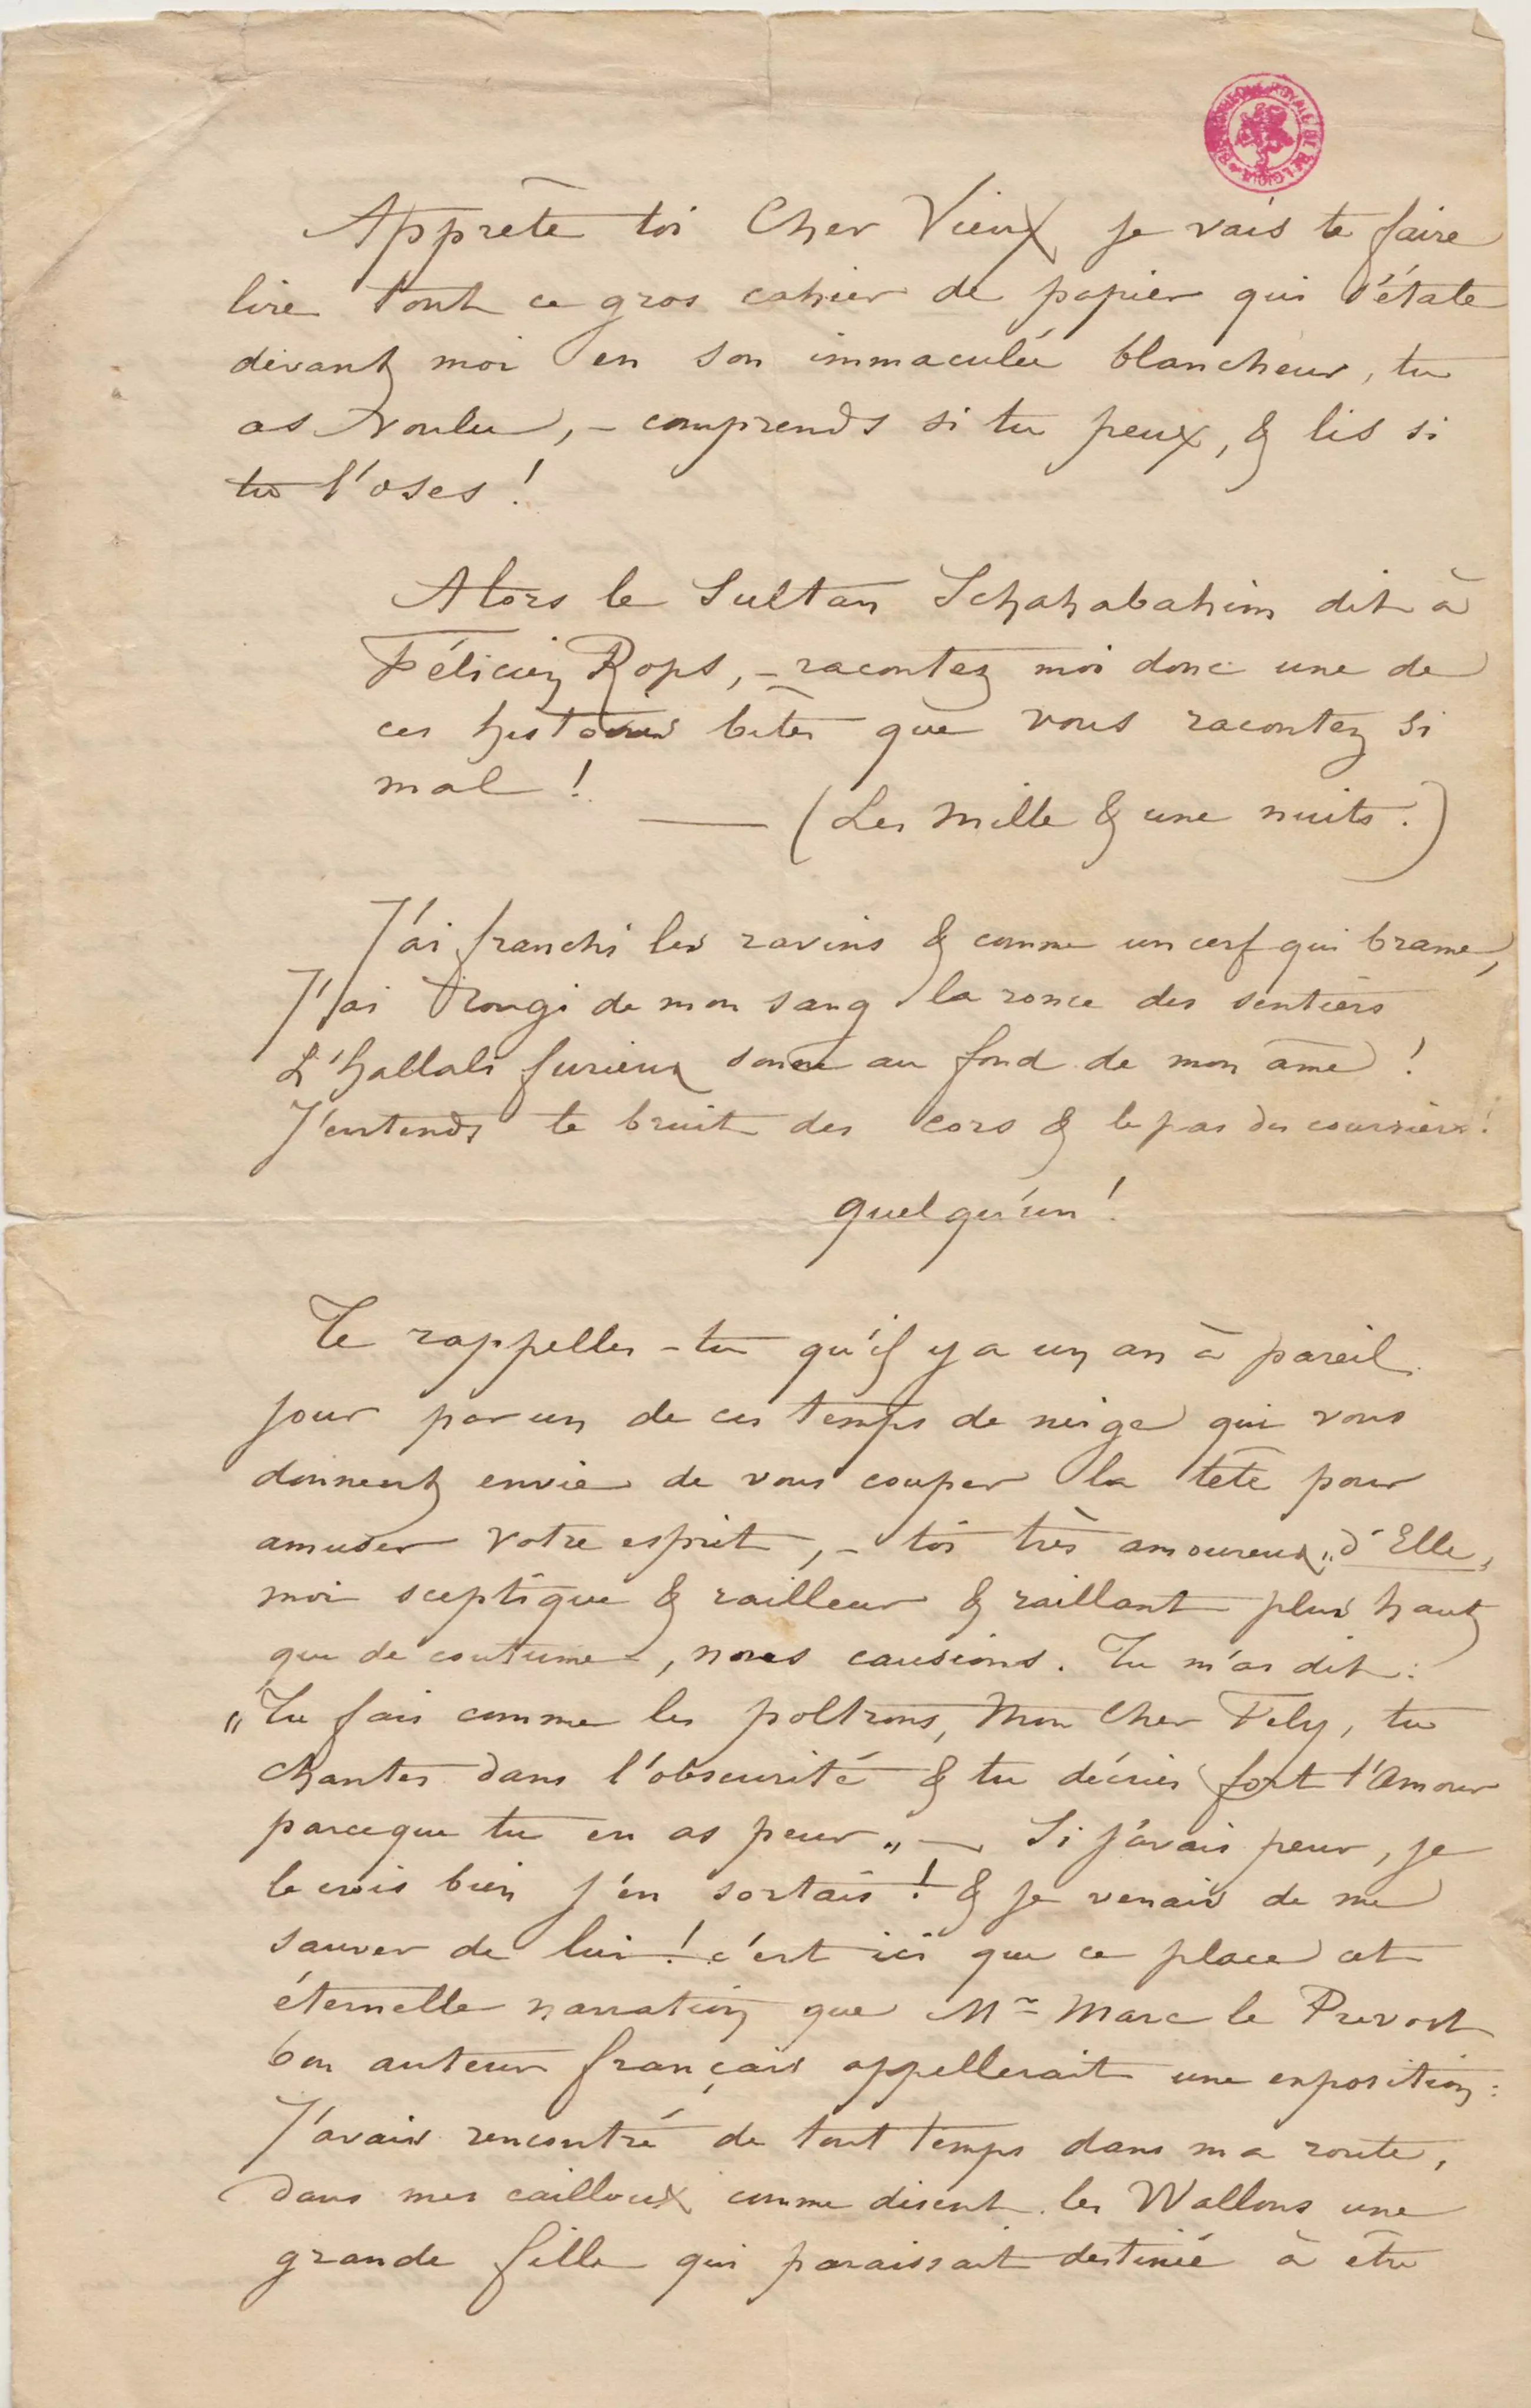 BIBLIOTHEQUE ROYALE DE BELGIQUE
Apprête toi Cher Vieux je vais te faire
lire tout ce gros cahier de papier qui s'étale
devant moi en son immaculée blancheur, tu
as voulu, – comprends si tu peux, & lis si
tu l'oses !
Alors le Sultan Schahabahim dit à
Félicien Rops, – racontez moi donc une de
ces histoires bêtes que vous racontez si
mal !
— (Les Mille & une nuits.)
J'ai franchi les ravins & comme un cerf qui brame,
J'ai rougi de mon sang la ronce des sentiers
L'hallali furieux sonne au fond de mon âme !
J'entends le bruit des cors & le pas des coursiers !
quelqu'un !
Te rappelles-tu qu'il y a un an à pareil
jour par un de ces temps de neige qui vous
donnent envie de vous couper la tête pour
amuser votre esprit, – toi très amoureux „d'Elle,
moi sceptique & railleur & raillant plus haut
que de coutume, nous causions. Tu m'as dit :
„Tu fais comme les poltrons, Mon Cher Fély, tu
chantes dans l'obscurité & tu décries fort l'Amour
parceque tu en as peur„ — Si j'avais peur, je
le crois bien j'en sortais ! & je venais de me
sauver de lui ! c'est ici que ce place cet
éternelle narration que Mr Marc le Prevost
bon auteur français appellerait une exposition :
J'avais rencontré de tout temps dans ma route,
dans mes cailloux comme disent les Wallons une
grande fille qui paraissait destinée à être